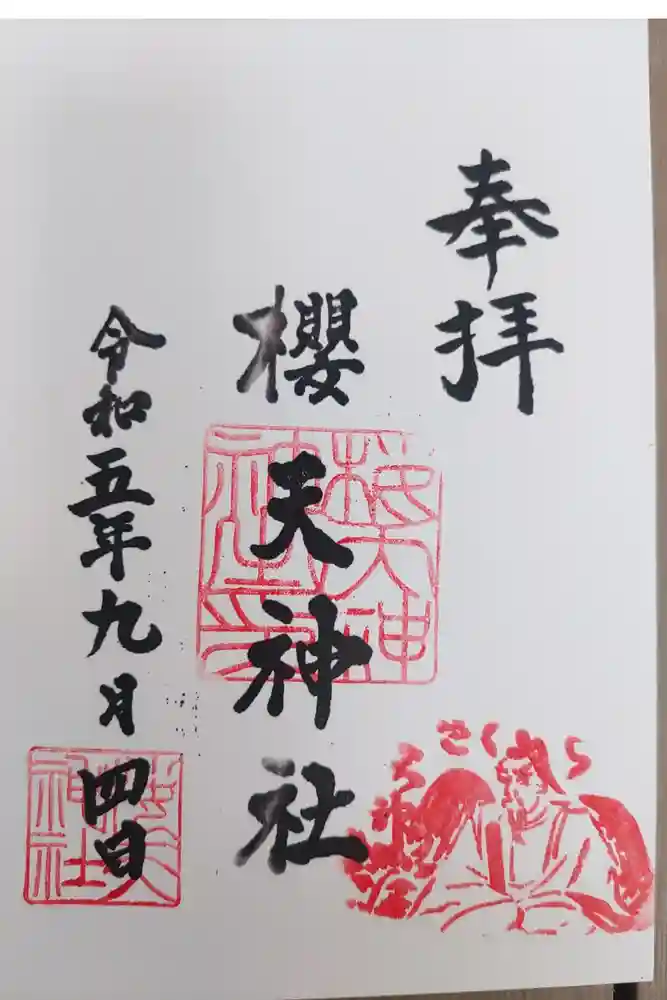 奉拝
櫻天神社
令和五年九月四日
さくら
天神
櫻天神社印
櫻天神社